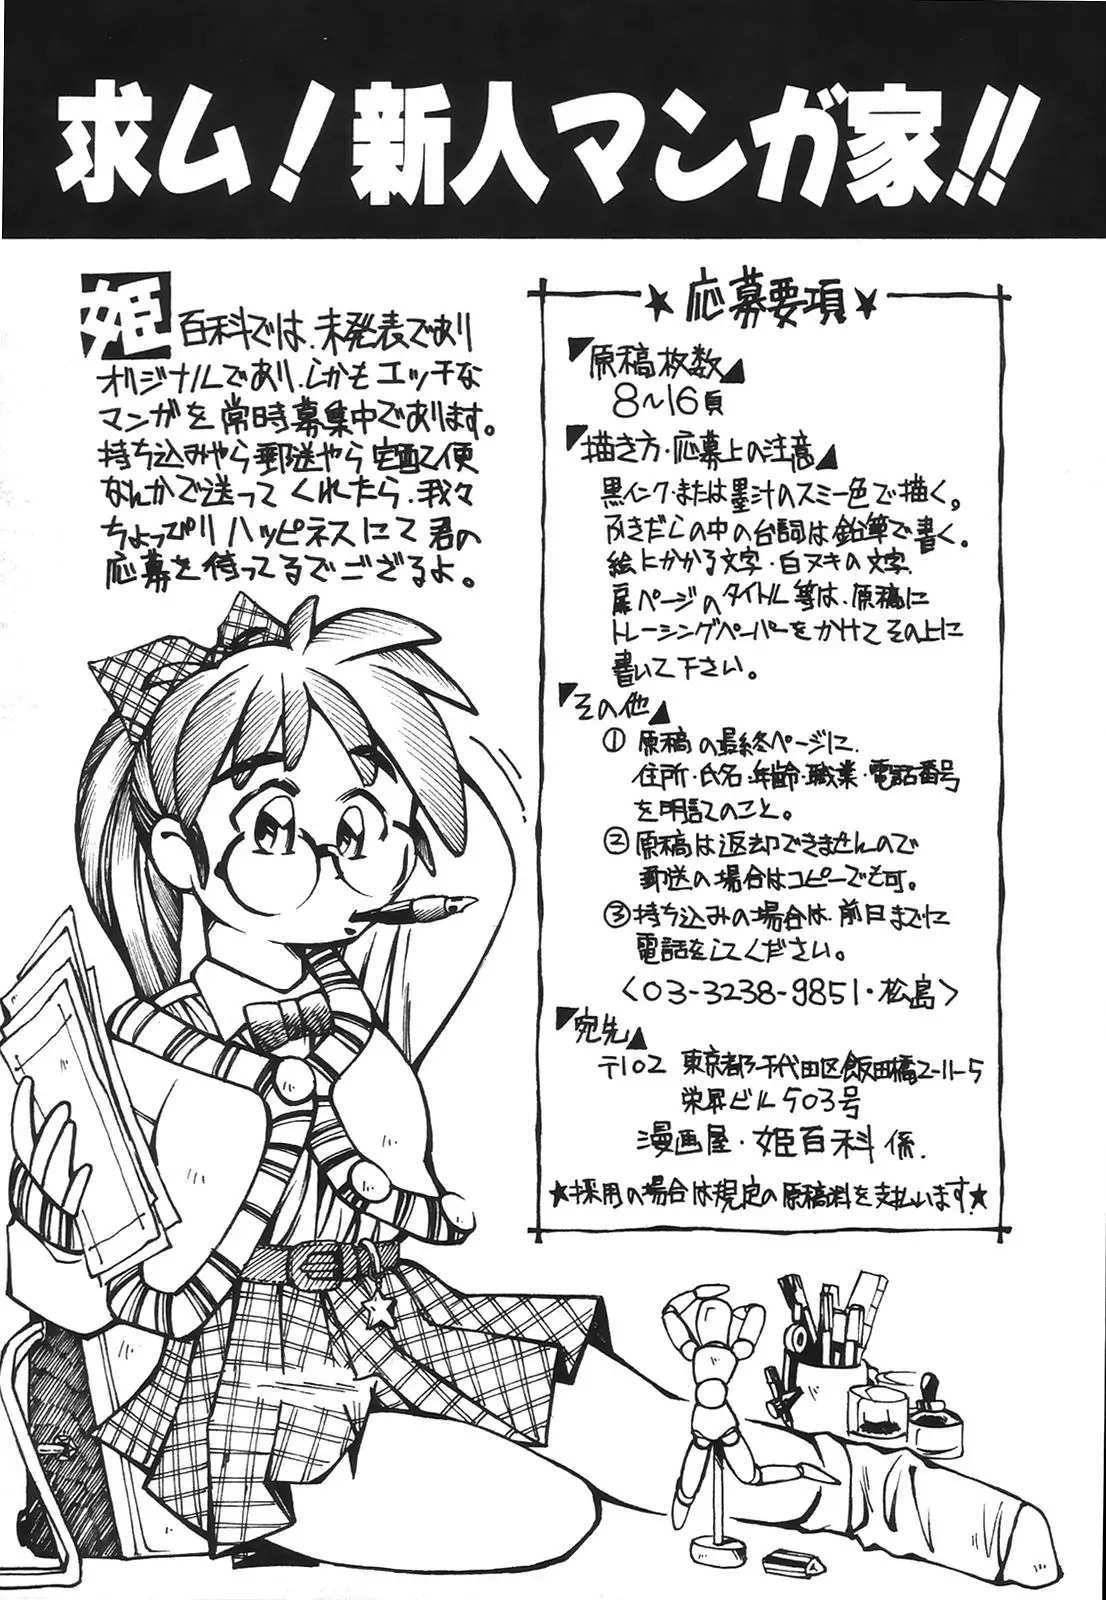 求ム!新人マンガ家!!
姫百科では、未発表であり
オリジナルであり、しかもエッチな
マンガを常時募集中であります。
持ち込みやら郵送やら宅配便
なんかで送ってくれたら、我々
ちょっぴりハッピネスにて君の
応募を待ってるでござるよ。
★応募要項★
原稿枚数
8〜16頁
描き方・応募上の注意
黒インク・または墨汁のスミ一色で描く。
ふきだしの中の台詞は鉛筆で書く。
絵にかかる文字・白ヌキの文字、
扉ページのタイトル等は、原稿に
トレーシングペーパーをかけてその上に
書いて下さい。
その他
① 原稿の最終ページに、
住所・氏名・年齢・職業・電話番号
を明記のこと。
② 原稿は返却できませんので
郵送の場合はコピーでも可。
③ 持ち込みの場合は、前日までに
電話をしてください。
〈03-3238-9851・松島〉
宛先
〒102 東京都千代田区飯田橋2-11-5
栄昇ビル503号
漫画屋・姫百科係.
★採用の場合は規定の原稿料を支払います★